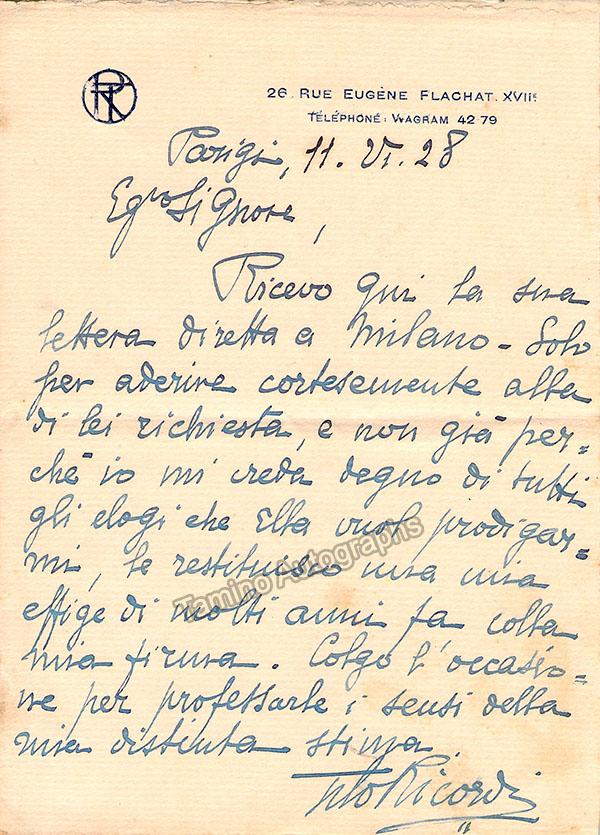 26. RUE EUGÈNE FLACHAT. XVIIᵉ
TÉLÉPHONE: WAGRAM 42-79
Parigi, 11. VI. 28
Egro Signore,
Ricevo qui la sua
lettera diretta a Milano - Solo
per aderire cortesemente alla
di lei richiesta, e non già per=
ché io mi creda degno di tutti
gli elogi che Ella vuol prodigar=
mi, le restituisco una mia
effige di molti anni fa colla
mia firma. Colgo l'occasio=
ne per professarle i sensi della
mia distinta stima.
Tito Ricordi
Tamino Autographs